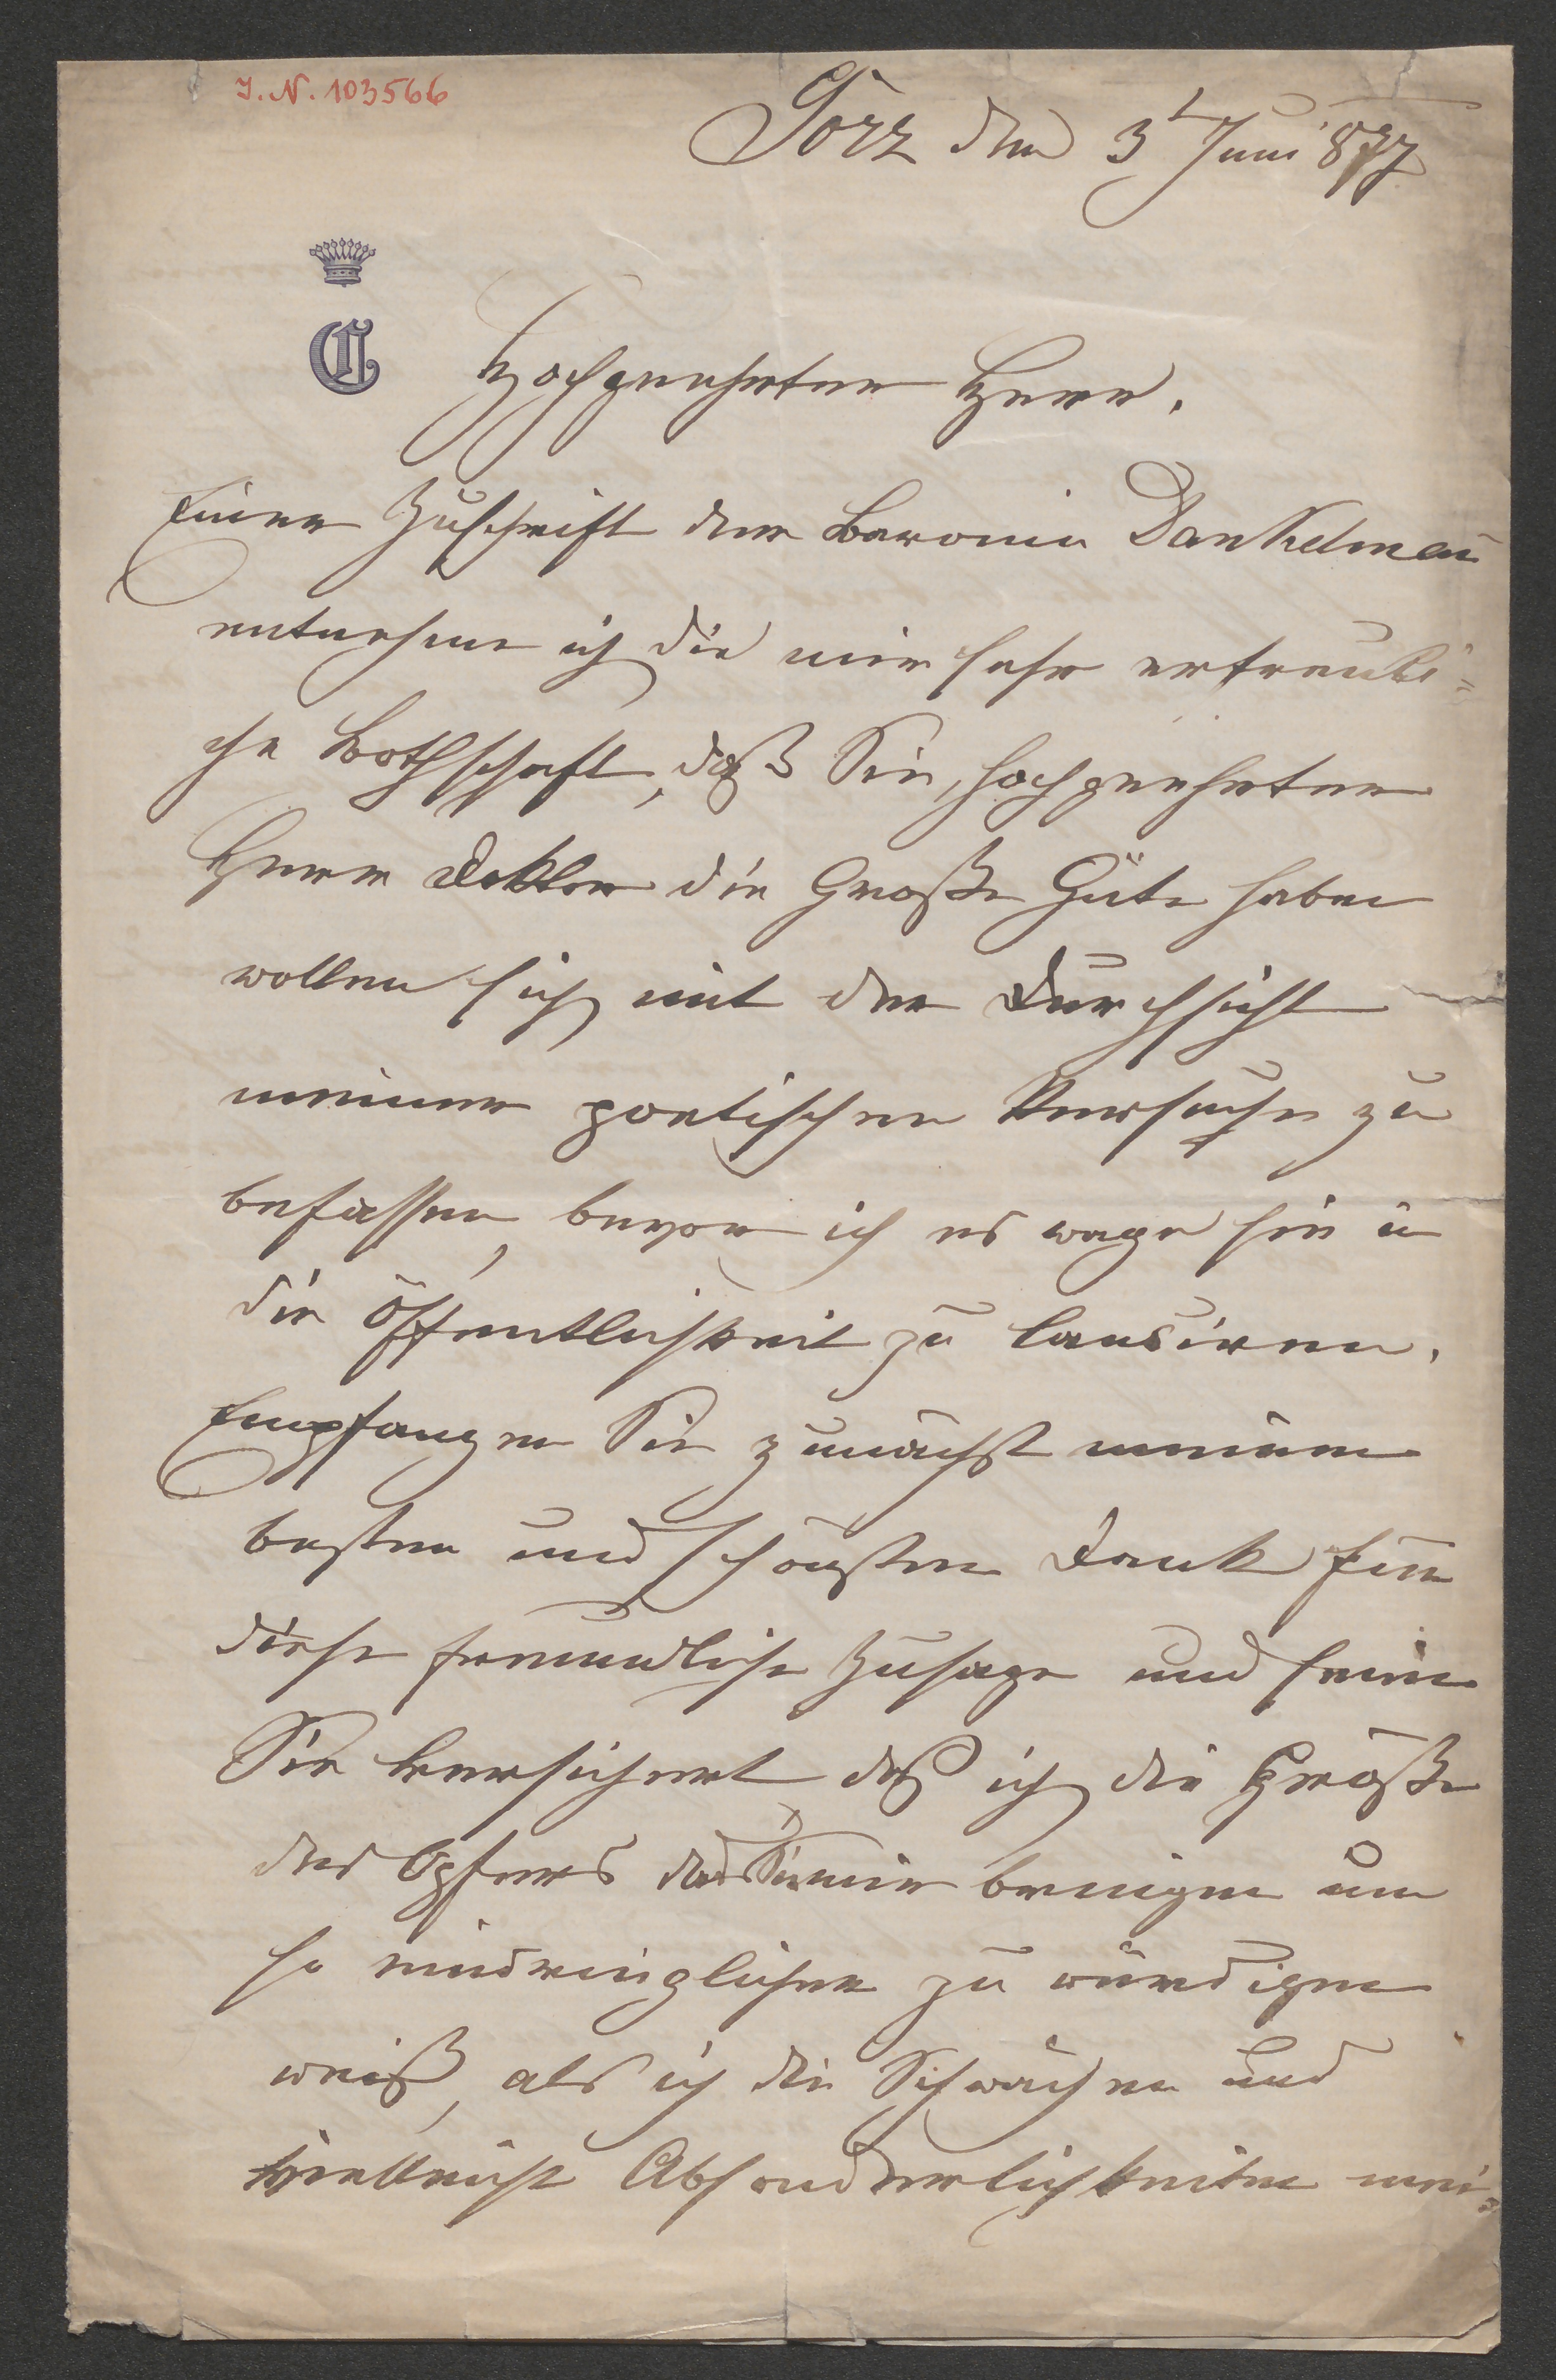 I. N. 103566
Görz den 3t Juni 877
C
Hochgeehrter Herr.
Einer Zuschrift der Baronin Dankelman̄
entnehme ich die mir sehr erfreuli=
che Bothschaft, daß Sie, hochgeehrter
Herr Doktor die Große Güte haben
wollen sich mit der Durchsicht
meiner poetischen Versuche zu
befassen, bevor ich es wage sie in
die Öffentlichkeit zu lansiren.
Empfangen Sie zunächst meinen
besten und schönsten Dank für
diese freundliche Zusage und seien
Sie versichert daß ich die Größe
des Opfers das Sie mir bringen um
so eindringlicher zu würdigen
weiß, als ich die Schwächen und
vielleicht Absonderlichkeiten mei=